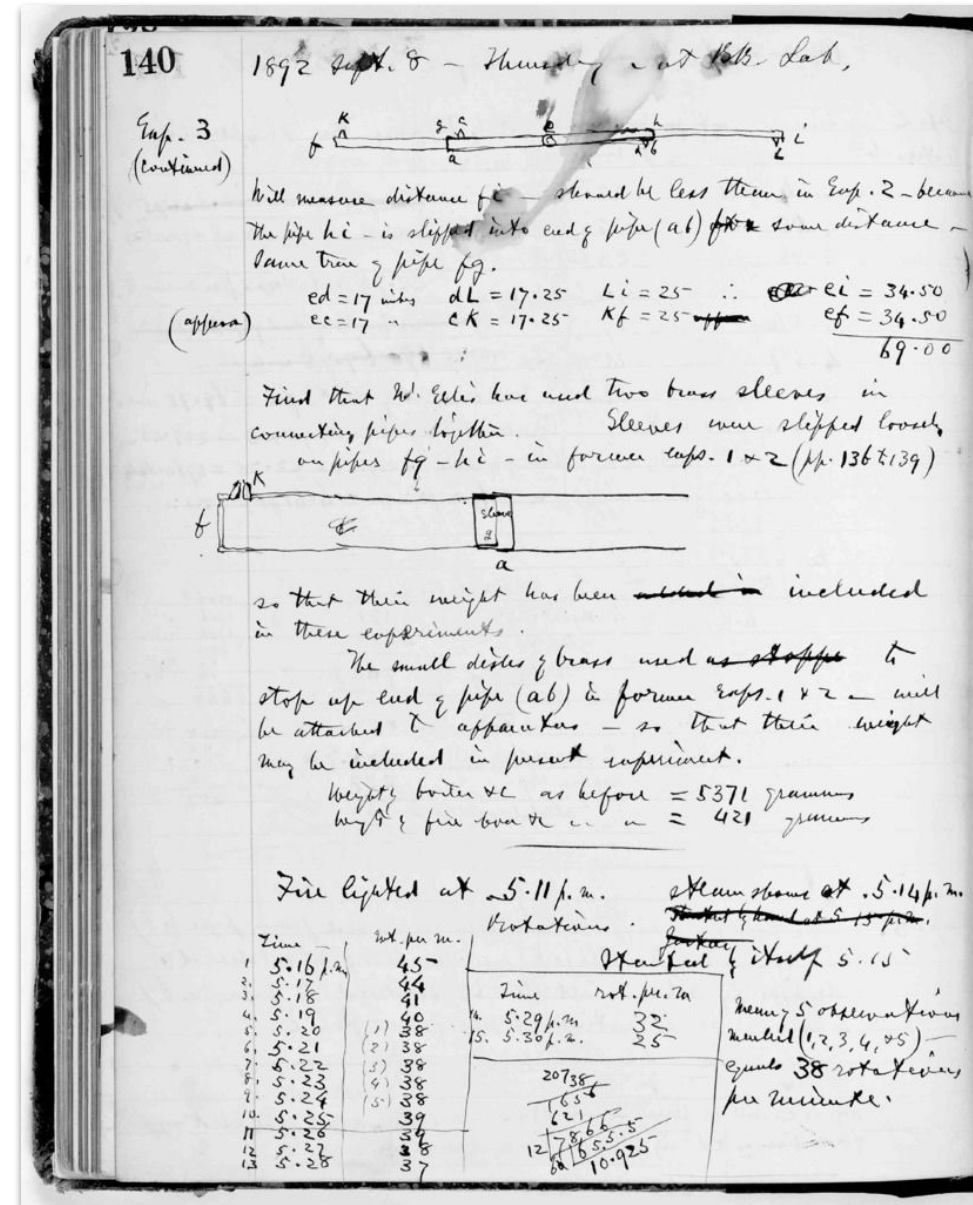 140
1892 Sept. 8 – Thursday – at B.B. Lab.
Exp. 3
(continued)
K g c e h i
f a d b L
Will measure distance fi – should be less than in Exp. 2 – because
the pipe hi – is slipped into end of pipe (ab) some distance –
Same true of pipe fg.
ed = 17 inches dL = 17.25 Li = 25 ∴ ei = 34.50
(approx) ec = 17 " cK = 17.25 Kf = 25 ef = 34.50
69.00
Find that Mr. Ellis has used two brass sleeves in
connecting pipes together. Sleeves were slipped loosely
on pipes fg – hi – in former exps. 1 & 2 (pp. 136 to 139)
K
f sleeve
a
so that their weight has been included
in these experiments.
The small disks of brass used to
stop up end of pipe (ab) in former Exps. 1 & 2 – will
be attached to apparatus – so that their weight
may be included in present experiment.
Weight of boiler &c as before = 5371 grammes
Weight of fire box &c " " = 421 grammes
Fire lighted at 5.11 p.m. steam shows at 5.14 p.m.
Rotations. Started by hand at 5.15 p.m.
Started by itself 5.15
Time rot. per m.
1. 5.16 p.m. 45
2. 5.17 44
3. 5.18 41
4. 5.19 40
5. 5.20 (1) 38
6. 5.21 (2) 38
7. 5.22 (3) 38
8. 5.23 (4) 38
9. 5.24 (5) 38
10. 5.25 39
11 5.26 39
12 5.27 38
13 5.28 37
Time rot. per m
14. 5.29 p.m 32
15. 5.30 p.m. 25
207
38
1656
621
12 7866 655.5
60 10.925
Mean of 5 observations
marked (1, 2, 3, 4, & 5) –
equals 38 rotations
per minute.